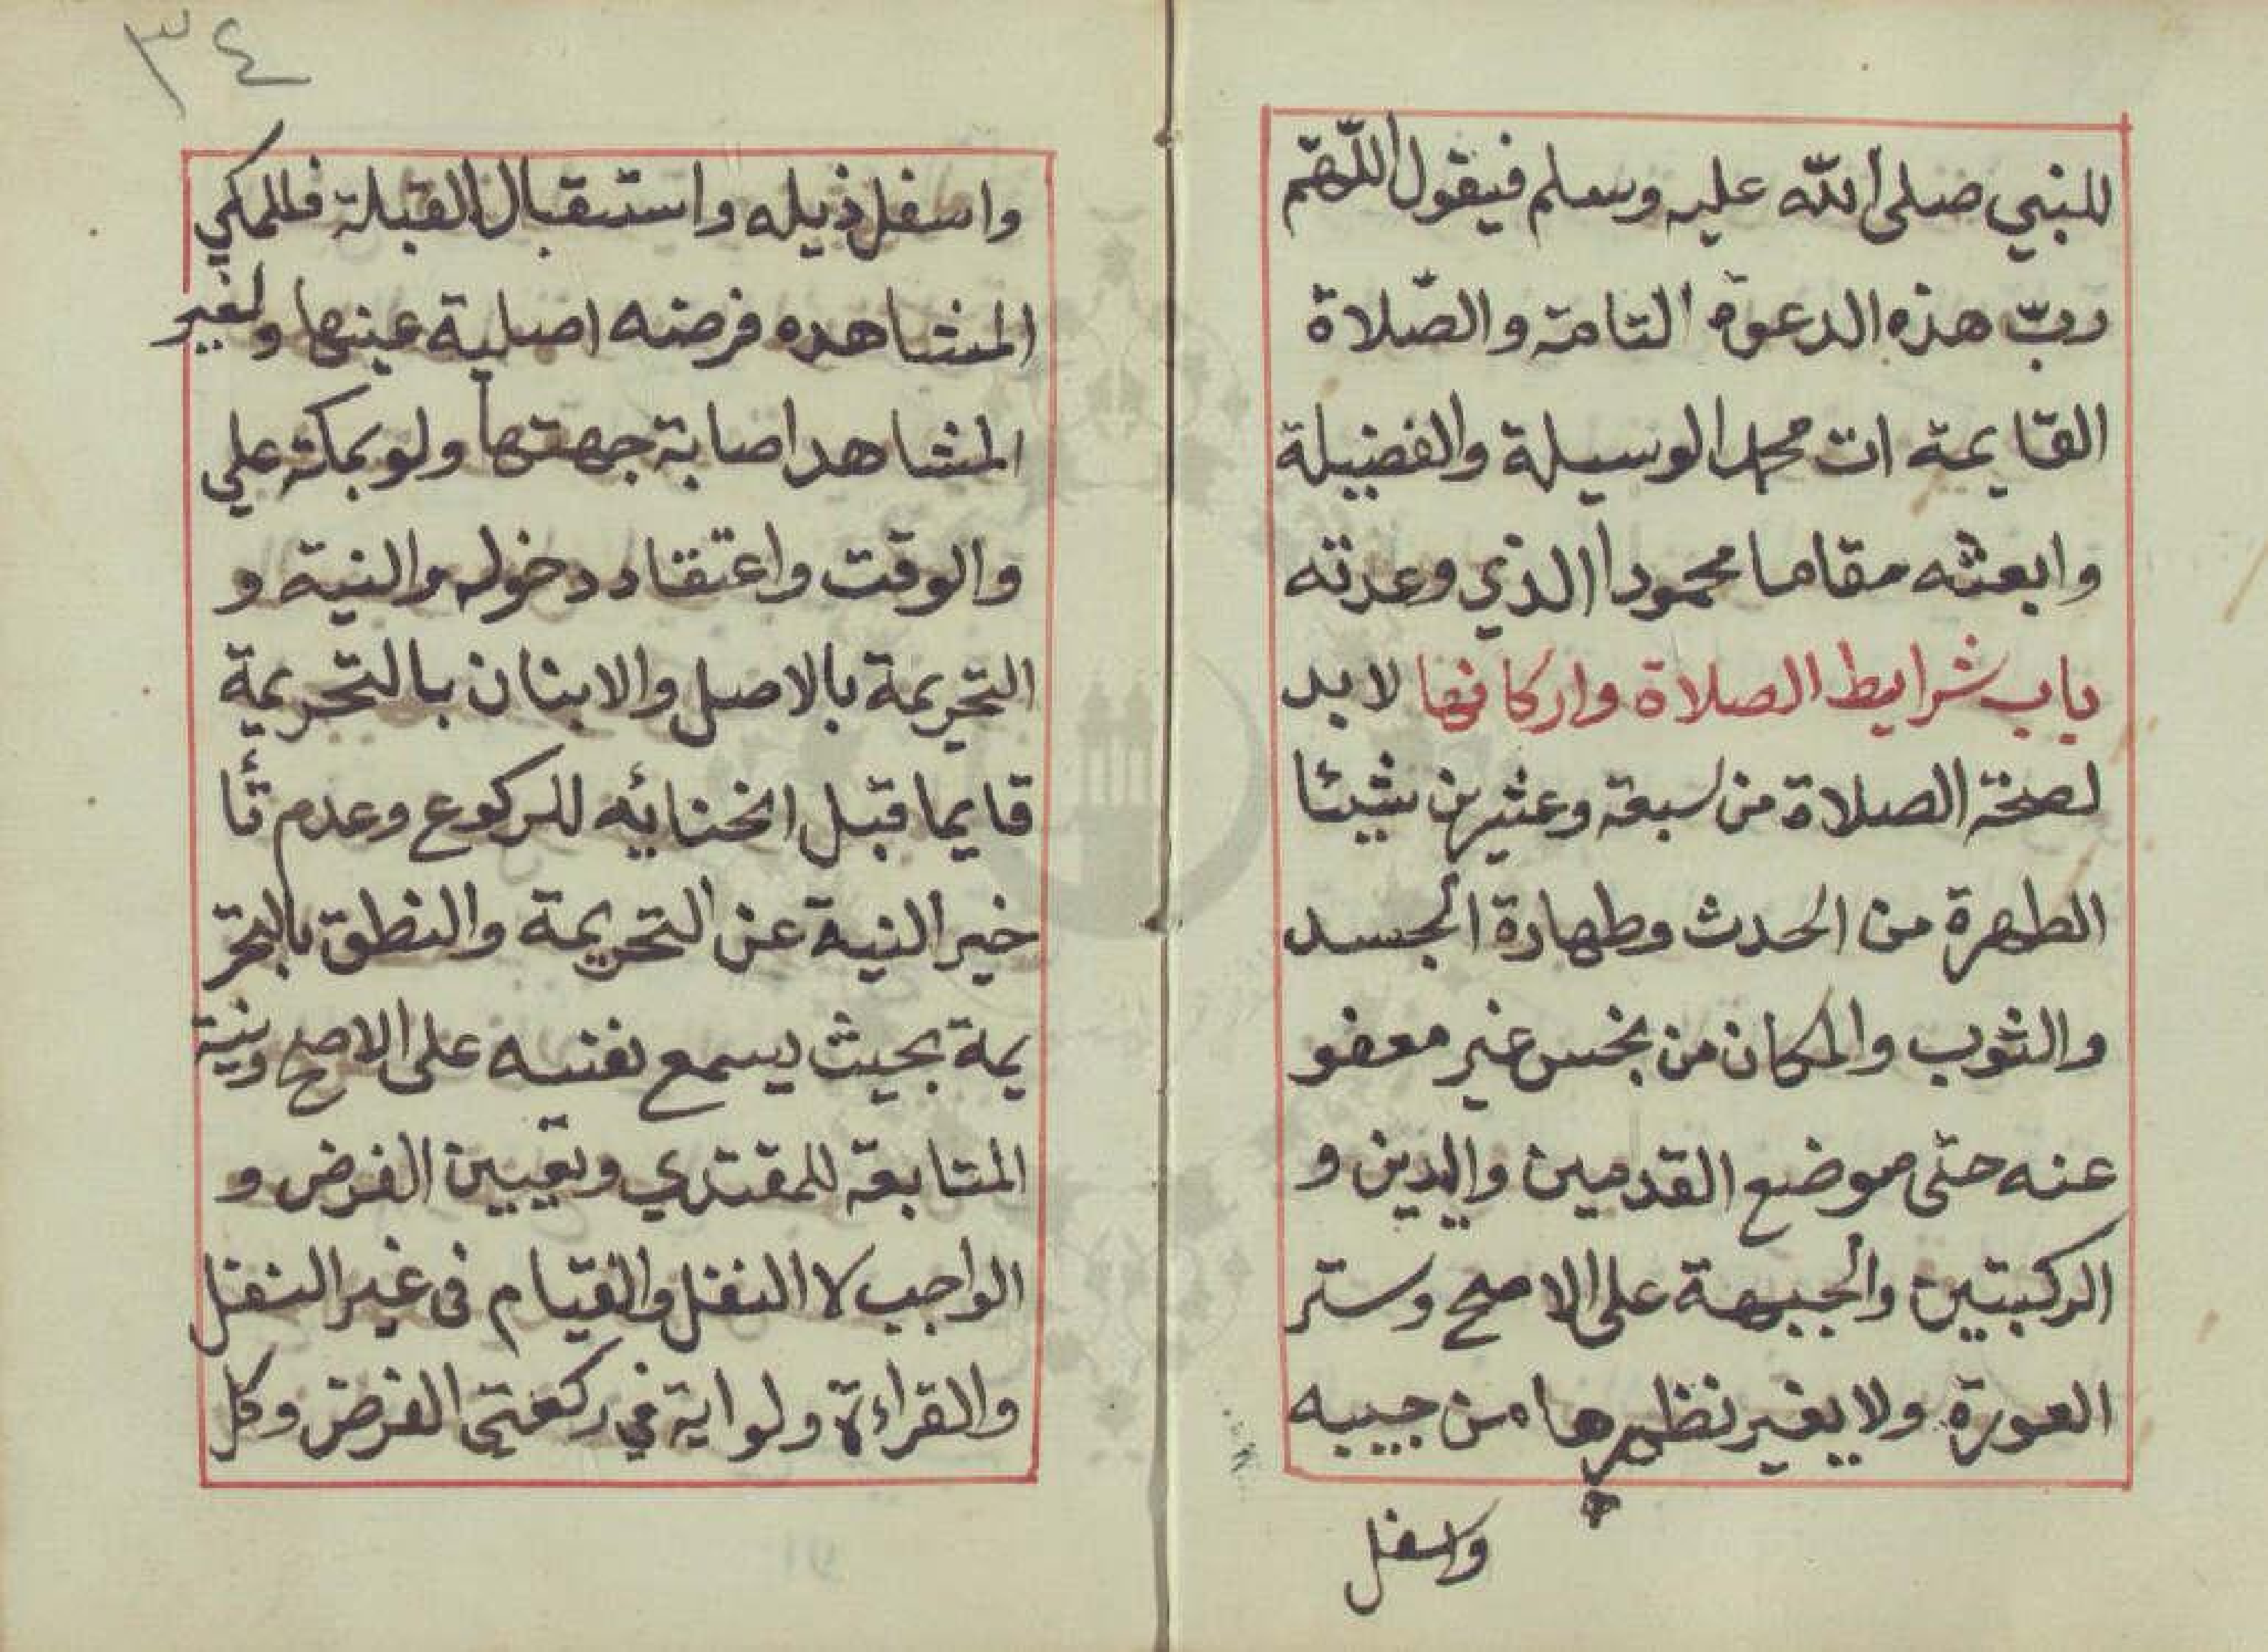 للنبي صلى الله عليه وسلم فيقول اللهّم
ربّ هذه الدعوة التامة والصّلاة
القايمة ات محمد الوسيلة والفضيلة
وابعثه مقاما محمودا الذي وعدته
باب شرايط الصلاة واركانها لا بد
لصحة الصلاة من سبعة وعشرين شيئا
الطهرة من الحدث وطهارة الجسد
والثوب والمكان من نجس غير معفو
عنه حتى موضع القدمين واليدين و
الركبتين والجبهة على الاصح وستر
العورة ولا يغير نظيرها من جيبه
واسفل
٣٤
واسفل ذيله واستقبال القبلة فللمكي
المشاهده فرضه اصلية عينها ولغير
المشاهد اصابة جهتها ولو بمكة علي
والوقت واعتقاد دخوله والنية و
التحريمة بالاصل والابنان بالتحريمة
قايما قبل انحنائه للركوع وعدم تأ
خير النية عن التحريمة والنطق بالتحر
يمة بحيث يسمع نفسه على الاصح ونية
المتابعة للمقتدي وتعيين الفرض و
الواجب لا النفل والقيام فى غير النفل
والقراءة ولو اية في ركعتي الفرض وكل